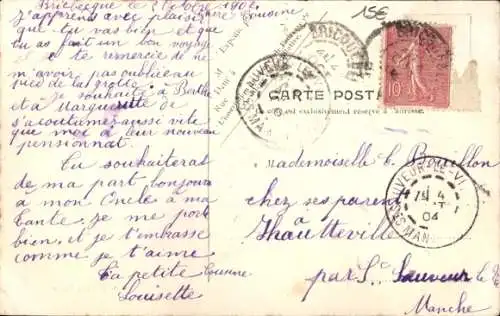 Bricbecque le 2 Octobre 1904
Chère Cousine
J'apprens avec plaisir
que tu vas bien et que
tu as fait un bon voyage
je te remercie de ne
m'avoir pas oublié au
pied de la grotte
je souhaite à Berthe
et à Marguerite de
s'acoutumez aussi vite
que moi à leur nouveau
pensionnat.
Tu souhaiteras
de ma part bonjour
à mon Oncle à ma
Tante. Je me porte
bien, et je t'embrasse
comme je t'aime
Ta petite Cousine
Louisette
15€
10
CARTE POSTA
est exclusivement réservé à l'adresse.
BRICQUE
ST SAUVEUR-LE-VI
MAN
04
Mademoiselle b. Bouillon
chez ses parents
à
Thautteville
par St Sauveur le
Manche